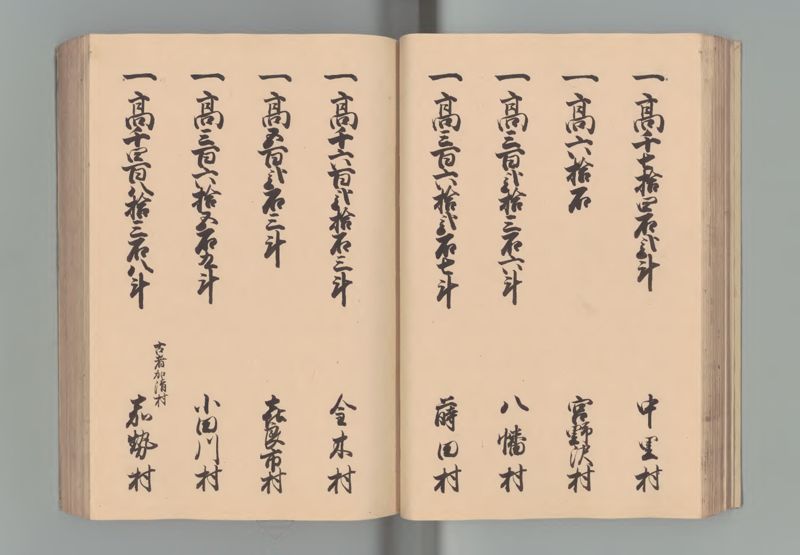 一高千七拾四石弐斗
中里村
一高六拾石
宮野沢村
一高三百弐拾三石六斗
八幡村
一高三百六拾弐石七斗
薄田村
一高千六百弐拾石三斗
金木村
一高五百弐石三斗
喜良市村
一高三百六拾五石九斗
小田川村
一高千四百八拾三石八斗
古者加清村
嘉勢村